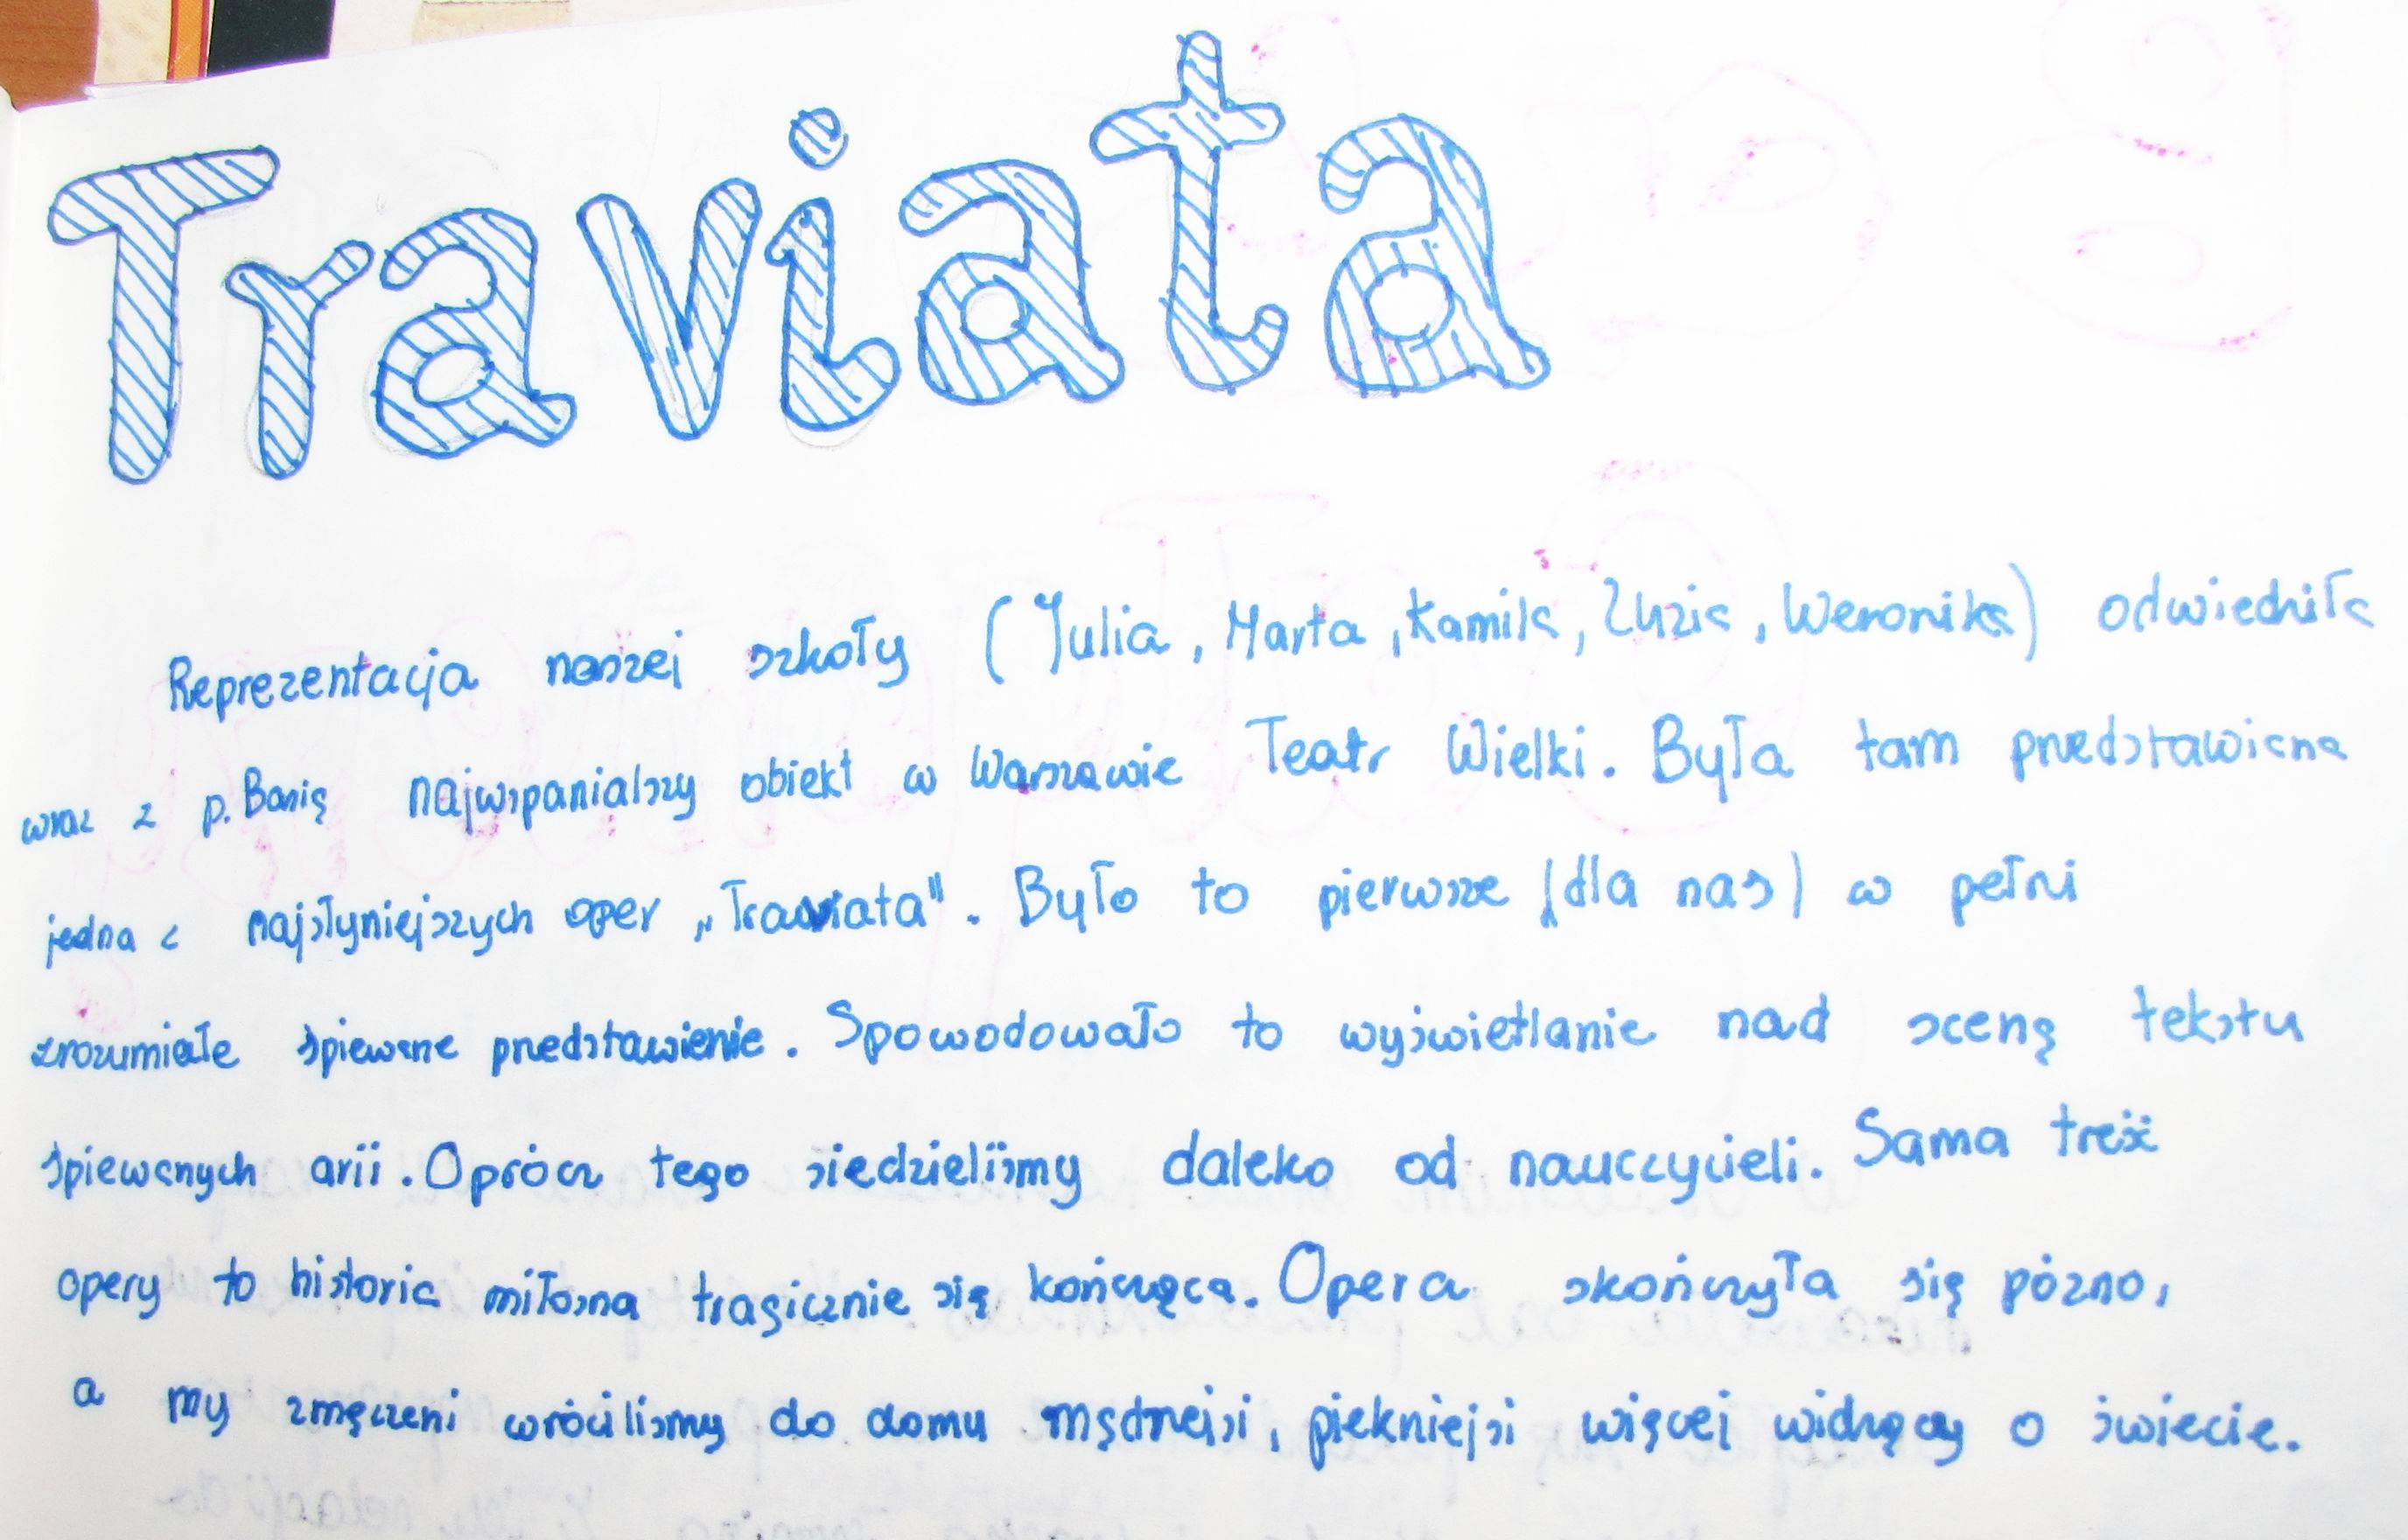 Traviata
Reprezentacja naszej szkoły (Julia, Marta, Kamila, Zuzia, Weronika) odwiedziła
wraz z p. Basią najwspanialszy obiekt w Warszawie Teatr Wielki. Była tam przedstawiana
jedna z najsłyniejszych oper „Traviata". Było to pierwsze (dla nas) w pełni
zrozumiałe śpiewane przedstawienie. Spowodowało to wyświetlanie nad sceną tekstu
śpiewanych arii. Oprócz tego siedzieliśmy daleko od nauczycieli. Sama treść
opery to historia miłosna tragicznie się kończąca. Opera skończyła się pózno,
a my zmęczeni wróciliśmy do domu mądrzejsi, piekniejsi więcej widzący o świecie.